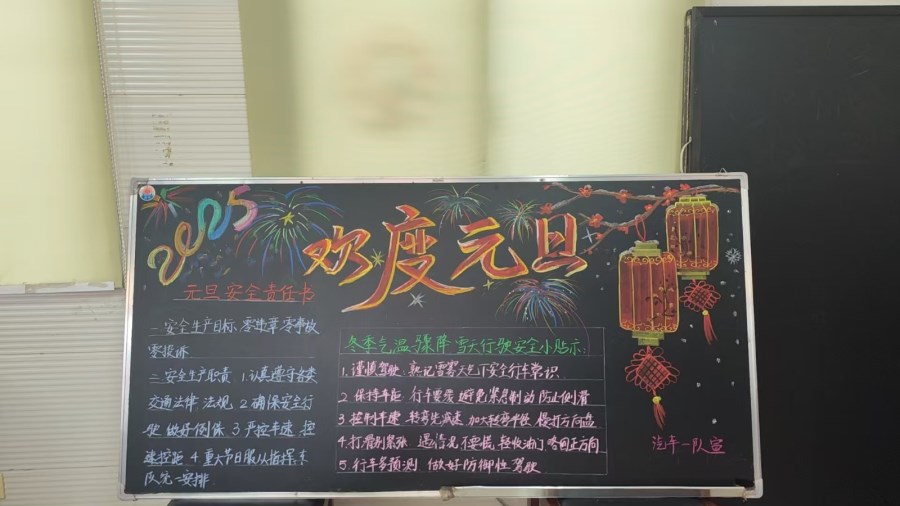 2025
欢度元旦
元旦安全责任书
一安全生产目标、零违章零事故
零投诉
二安全生产职责 1.认真遵守各类
交通法律法规 2 确保安全行
驶 做好例保 3 严控车速、控
速控距 4 重大节日服从指挥、车
队统一安排
冬季气温骤降 雪天行驶安全小贴示:
1.谨慎驾驶、熟记雪雾天气下安全行车常识
2 保持车距 行车要缓 避免紧急制动 防止侧滑
3 控制车速 转弯先减速 加大转弯半径 慢打方向盘
4.打滑别紧张 遇情况不要慌 轻收油门 略回正方向
5 行车多预测 做好防御性驾驶
汽车一队宣